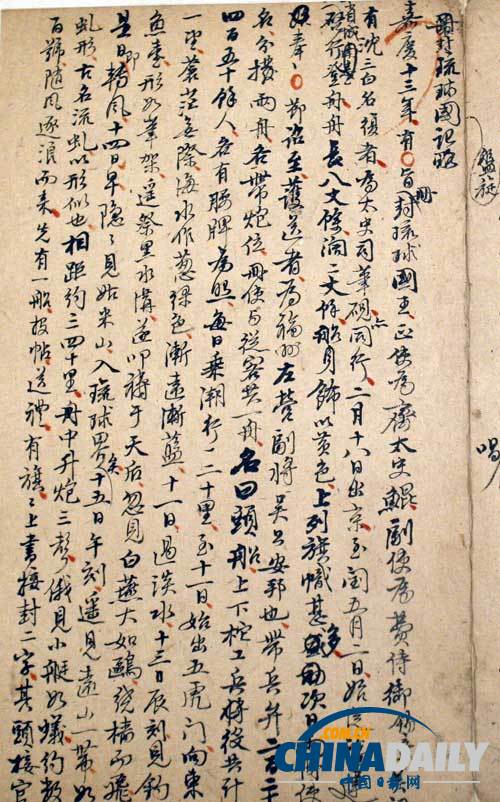 冊封琉球國記略
嘉慶十三年有旨冊封琉球國王正使為齊太史鯤副使為費侍御錫
有沈三白名復者為太史司筆硯亦同行二月十八日出京至閏五月二日始從
登舟舟長八丈餘濶二丈餘船身飾以黃色上列旗幟甚多次日
奉節詔至護送者為福州左營副將吳公安邦也帶兵弁二百二十
名分撥兩舟各帶炮位冊使與從客共一舟名曰頭船上下柁工兵將役共計
四百五十餘人各有腰牌為照每日乘潮行一二十里至十一日始出五虎門向東
一望蒼茫無際海水作葱綠色漸遠漸藍十一日過淡水十三日辰刻見釣
魚臺形如筆架遙祭黑水溝遂叩禱于天后忽見白燕大如鷗繞檣而飛
是日即轉風十四日早隱々見姑米山入琉球界矣十五日午刻遙見遠山一帶如
虬形古名流虬以形似也相距約三四十里舟中升炮三聲俄見小艇如蟻約數
百號隨風逐浪而來先有一船投帖送禮有旗々上書接封二字其頭接官
唱
.COM.CN
CHINADAILY
中國日報網